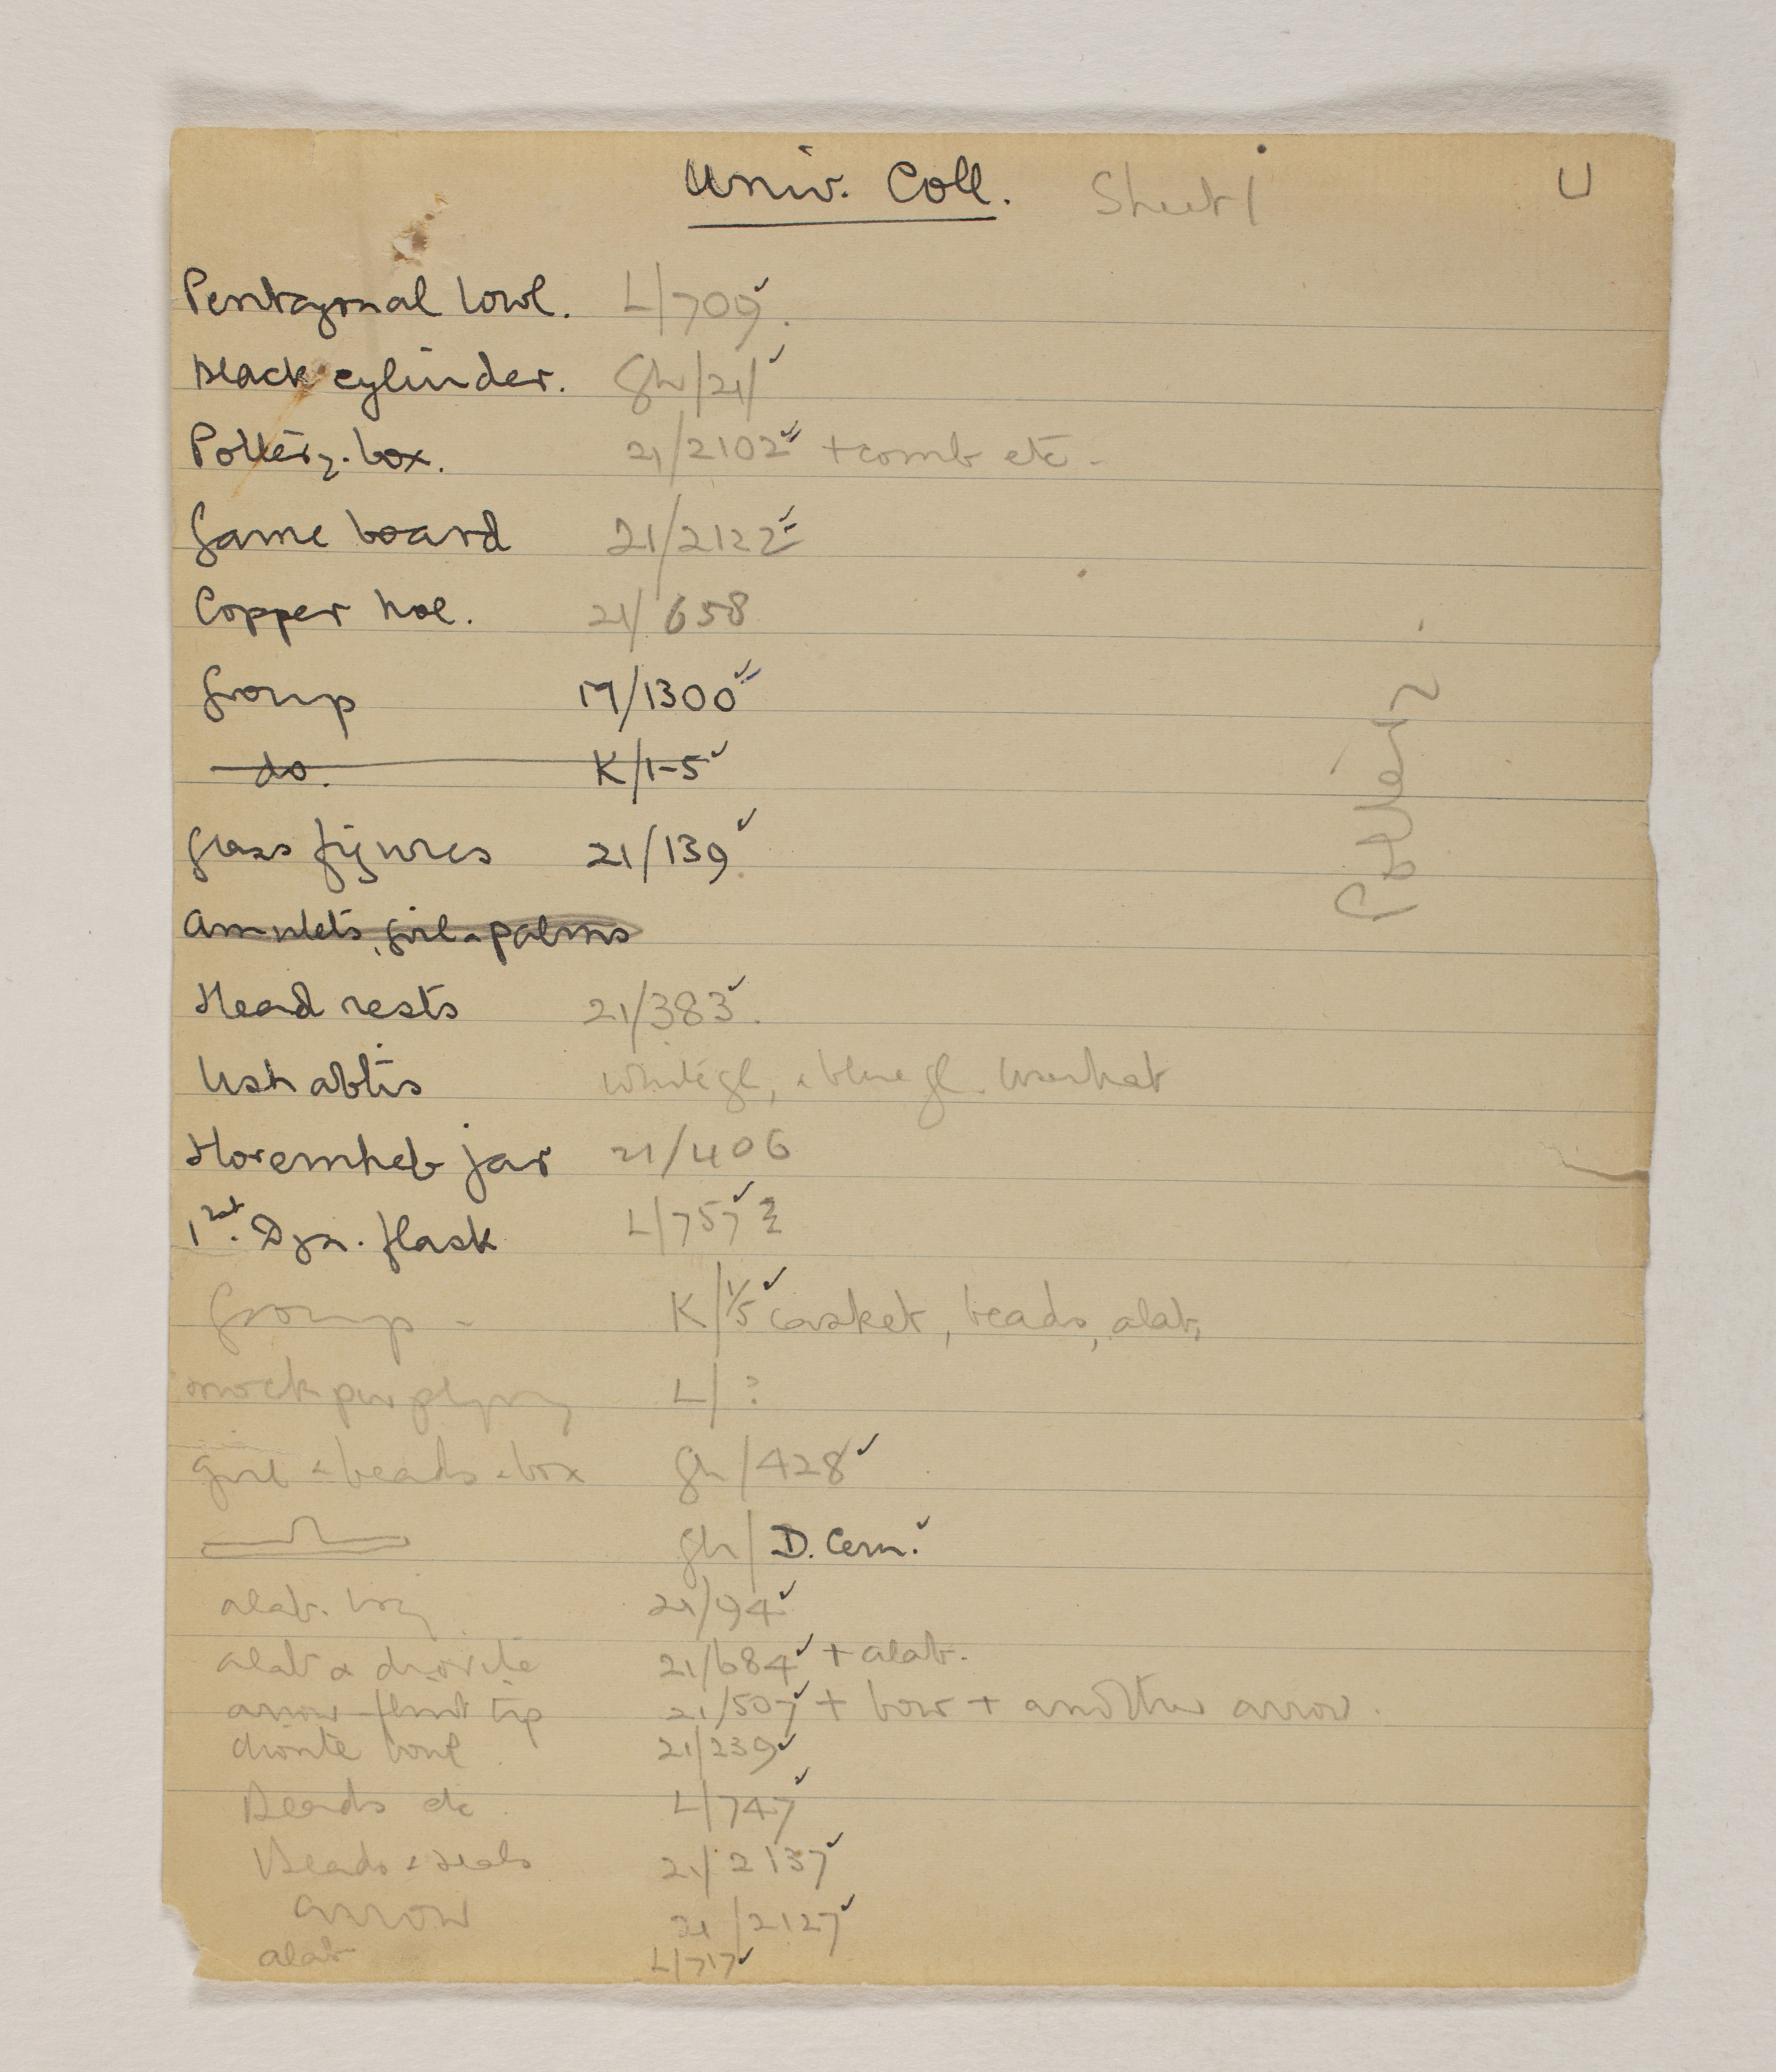 Univ. Coll. Sheet 1 U
Pentagonal bowl. L/709 ✓.
Black cylinder. Gh/21/ ✓
Pottery. box. 21/2102 ✓ + comb etc.
Game board 21/2122 ✓
Copper hoe. 21/658
Group 17/1300 ✓
do. K/1-5 ✓
Glass figures 21/139 ✓
Amulets, girl & palms
Head rests 21/383 ✓.
Ushabtis white gl, & blue gl. Userhat
Horemheb jar 21/406
1st. Dyn. flask L/757 ✓
Group - K/1/5 ✓ casket, beads, alab,
mock porphyry L/ ?
girl & beads & box Gh/428 ✓
Gh/D. Cem. ✓
alab. 21/94 ✓
alab & diorite 21/684 ✓ + alab.
arrow flint tip 21/507 ✓ + bow + another arrow.
diorite bowl 21/239 ✓
Beads etc L/747 ✓
Beads & seals 21/2137 ✓
arrow 21/2127 ✓
alab L/717 ✓
Pottery